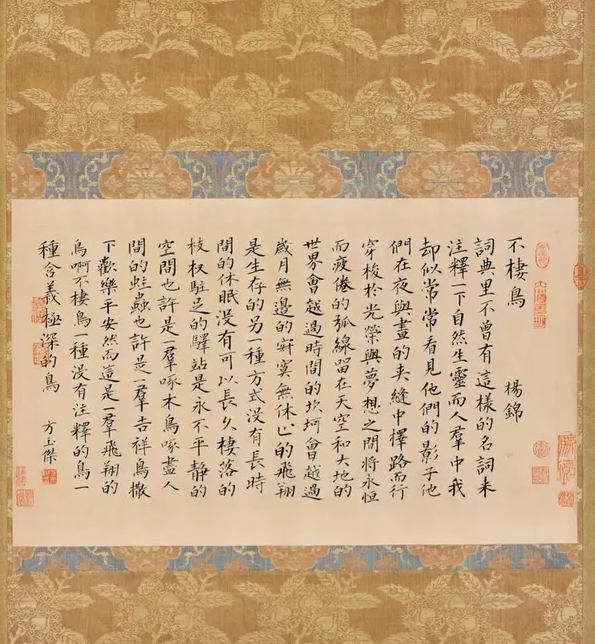 不棲鳥 楊錦
詞典里不曾有這樣的名詞来
注釋一下自然生靈而人羣中我
却似常常看見他們的影子他
們在夜與晝的夹縫中擇路而行
穿梭於光榮與夢想之間将永恒
而疲倦的弧線留在天空和大地的
世界會越過時間的坎坷會越過
歲月無邊的寂寞無休止的飛翔
是生存的另一種方式没有長時
間的休眠没有可以長久棲落的
枝杈駐足的驛站是永不平静的
空間也許是一羣啄木鳥啄盡人
間的蛀蟲也許是一羣吉祥鳥撒
下歡樂平安然而這是一羣飛翔的
鳥啊不棲鳥一種没有注釋的鳥一
種含義極深的鳥 方玉傑